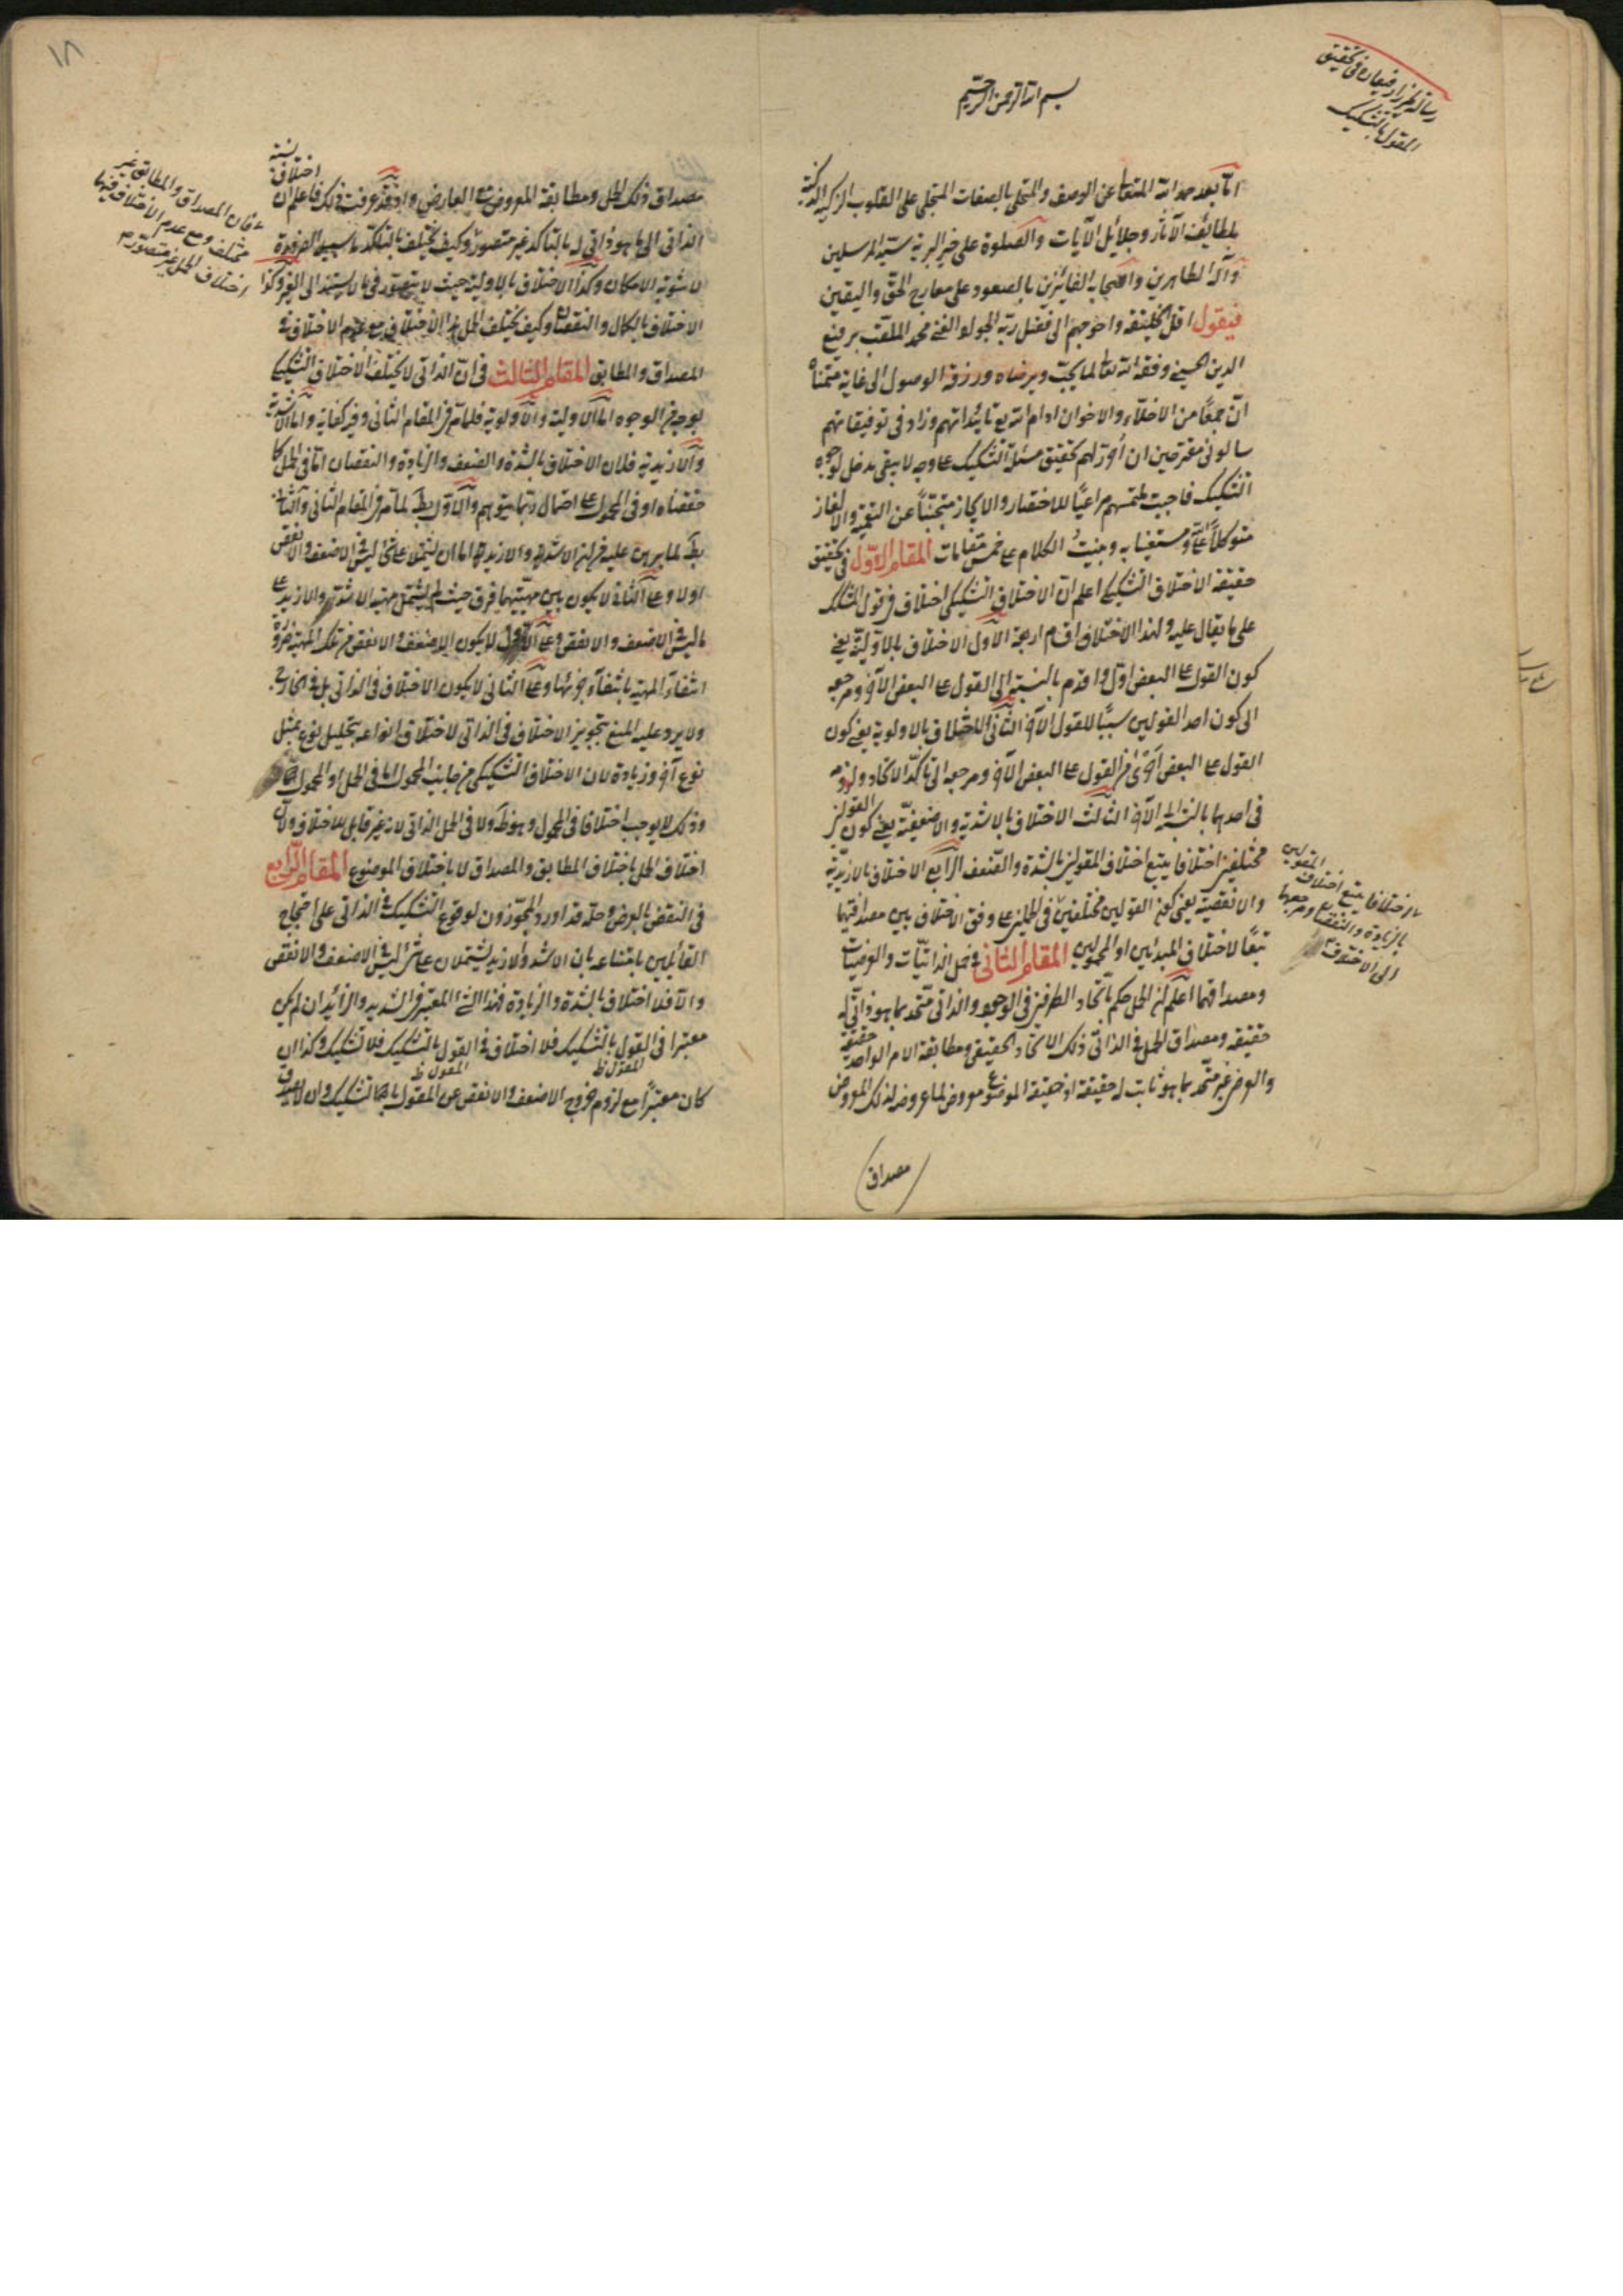 رسالة ميرزا رفيعا في تحقيق
المقول بالتشكيك
بسم الله الرحمن الرحيم
اما بعد حمد الله المتعالي عن الوصف والمتحلي بالصفات المتجلي على القلوب الزكية الذكية
بلطائف الآثار وجلائل الآيات والصلوة على خير البرية سيد المرسلين
وآله الطاهرين واصحابه الفائزين بالصعود على معارج الحق واليقين
فيقول اقل الخليقة واحوجهم الى فضل ربه الجواد الغني محمد الملقب برفيع
الدين الحسيني وفقه الله تعالى لما يحب ويرضاه ورزقه الوصول الى غاية متمناه
ان جمعًا من الاخلاء والاخوان ادام الله تع تائيداتهم وزاد في توفيقاتهم
سالوني مقترحين ان أورد لهم تحقيق مسئلة التشكيك على وجه لا يبقى مدخل لوجوه
التشكيك فاجبت ملتمسهم مراعيًا للاختصار والايجاز متجنبًا عن التعمية والالغاز
متوكلاً على الله ومستعينا به وبنيتُ الكلام على خمس مقامات المقام الاول في تحقيق
حقيقة الاختلاف التشكيكي اعلم ان الاختلاف التشكيكي اختلاف في قول المشكك
على ما يقال عليه ولهذا الاختلاف اقسام اربعة الاول الاختلاف بالاولية يعني
كون القول على البعض اول واقدم بالنسبة الى القول على البعض الآخر ومرجعه
الى كون احد القولين سببًا للقول الآخر الثاني الاختلاف بالاولوية يعني كون
القول على البعض احرى من القول على البعض الآخر ومرجعه الى تاكد الاتحاد ولزومه
في احدهما بالنسبة الى الآخر الثالث الاختلاف بالاشدية والاضعفية يعني كون القولين
مختلفين اختلافا يتبع اختلاف المقولين بالشدة والضعف الرابع الاختلاف بالازيدية
والانقصية يعني كون القولين مختلفين في الحملين على وفق الاختلاف بين مصداقيهما
تبعًا لاختلاف المبدئين او المحمولين المقام الثاني في حمل الذاتيات والعرضيات
ومصداقهما اعلم ان الحمل حكم باتحاد الطرفين في الوجود والذاتي متحد بما هو ذاتي له
حقيقة ومصداق الحمل في الذاتي ذلك الاتحاد الحقيقي ومطابقة الامر الواحد حقيقة
والعرضي غير متحد بما هو ثابت له حقيقة اذ حقيقة الموضوع معروض لما عروضه لذلك المعروض
اختلافا يتبع اختلاف المقولين
بالزيادة والنقصان ومرجعها
الى الاختلاف
مصداق
١٨
مصداق ذلك الحمل ومطابقة المعروض مع العارض واذ قد عرفت ذلك فاعلم ان اختلاف نسبة
الذاتي الى ما هو ذاتي له بالتاكد غير متصور وكيف يختلف بالتاكد ما سبيله الضرورة
لا شوبه الامكان وكذا الاختلاف بالاولية حيث لا يتصور في ما لا يستند الى الغير وكذا
الاختلاف بالكمال والنقصان وكيف يختلف الحمل هذا الاختلاف مع عدم الاختلاف في
المصداق والمطابق المقام الثالث في ان الذاتي لا يختلف الاختلاف التشكيكي
بوجه من الوجوه اما الاولية والاولوية فلما مر في المقام الثاني وفيه كفاية واما الاشدية
والازيدية فلان الاختلاف بالشدة والضعف والزيادة والنقصان اما في الحمل كما
حققناه او في المحمول على احتمال ربما يتوهم والاول بط لما مر في المقام الثاني والثاني
بط لما برهن عليه من ان الاشد والازيد اما ان يشتملا على شيء ليس في الاضعف والانقص
او لا وعلى الثاني لا يكون بين مهيتيهما فرق حيث لم يشتمل مهية الاشد والازيد على
ما ليس في الاضعف والانقص وعلى الاول لا يكون الاضعف والانقص من تلك المهية ضرورة
انتفاء المهية بانتفاء جزئها وعلى الثاني لا يكون الاختلاف في الذاتي بل في الخارج
ولا يرد عليه المنع بتجويز الاختلاف في الذاتي لاختلاف انواعه بتحليل نوع بمثل
نوع آخر وزيادة لان الاختلاف التشكيكي من جانب المحمول اما في الحمل او المحمول
وذلك لا يوجب اختلافا في المحمول وهو ظ ولا في الحمل الذاتي لانه غير قابل للاختلاف ولان
اختلاف الحمل باختلاف المطابق والمصداق لا باختلاف الموضوع المقام الرابع
في النقض بالعرض وحله قد اورد المجوزون لوقوع التشكيك في الذاتي على احتجاج
القائلين بامتناعه بان الاشد والازيد يشتملان على شيء ليس في الاضعف والانقص
والا فلا اختلاف بالشدة والزيادة فهذا الشيء المعتبر في الشديد والزائد ان لم يكن
معتبرا في القول بالتشكيك فلا اختلاف في القول بالتشكيك فلا تشكيك وكذا ان
المقول ظ
المقول ظ
كان معتبرًا مع لزوم خروج الاضعف والانقص عن المقول بالتشكيك وان لا يصدق
فان المصداق والمطابق غير
مختلف ومع عدم الاختلاف فيهما
اختلاف الحمل غير متصور